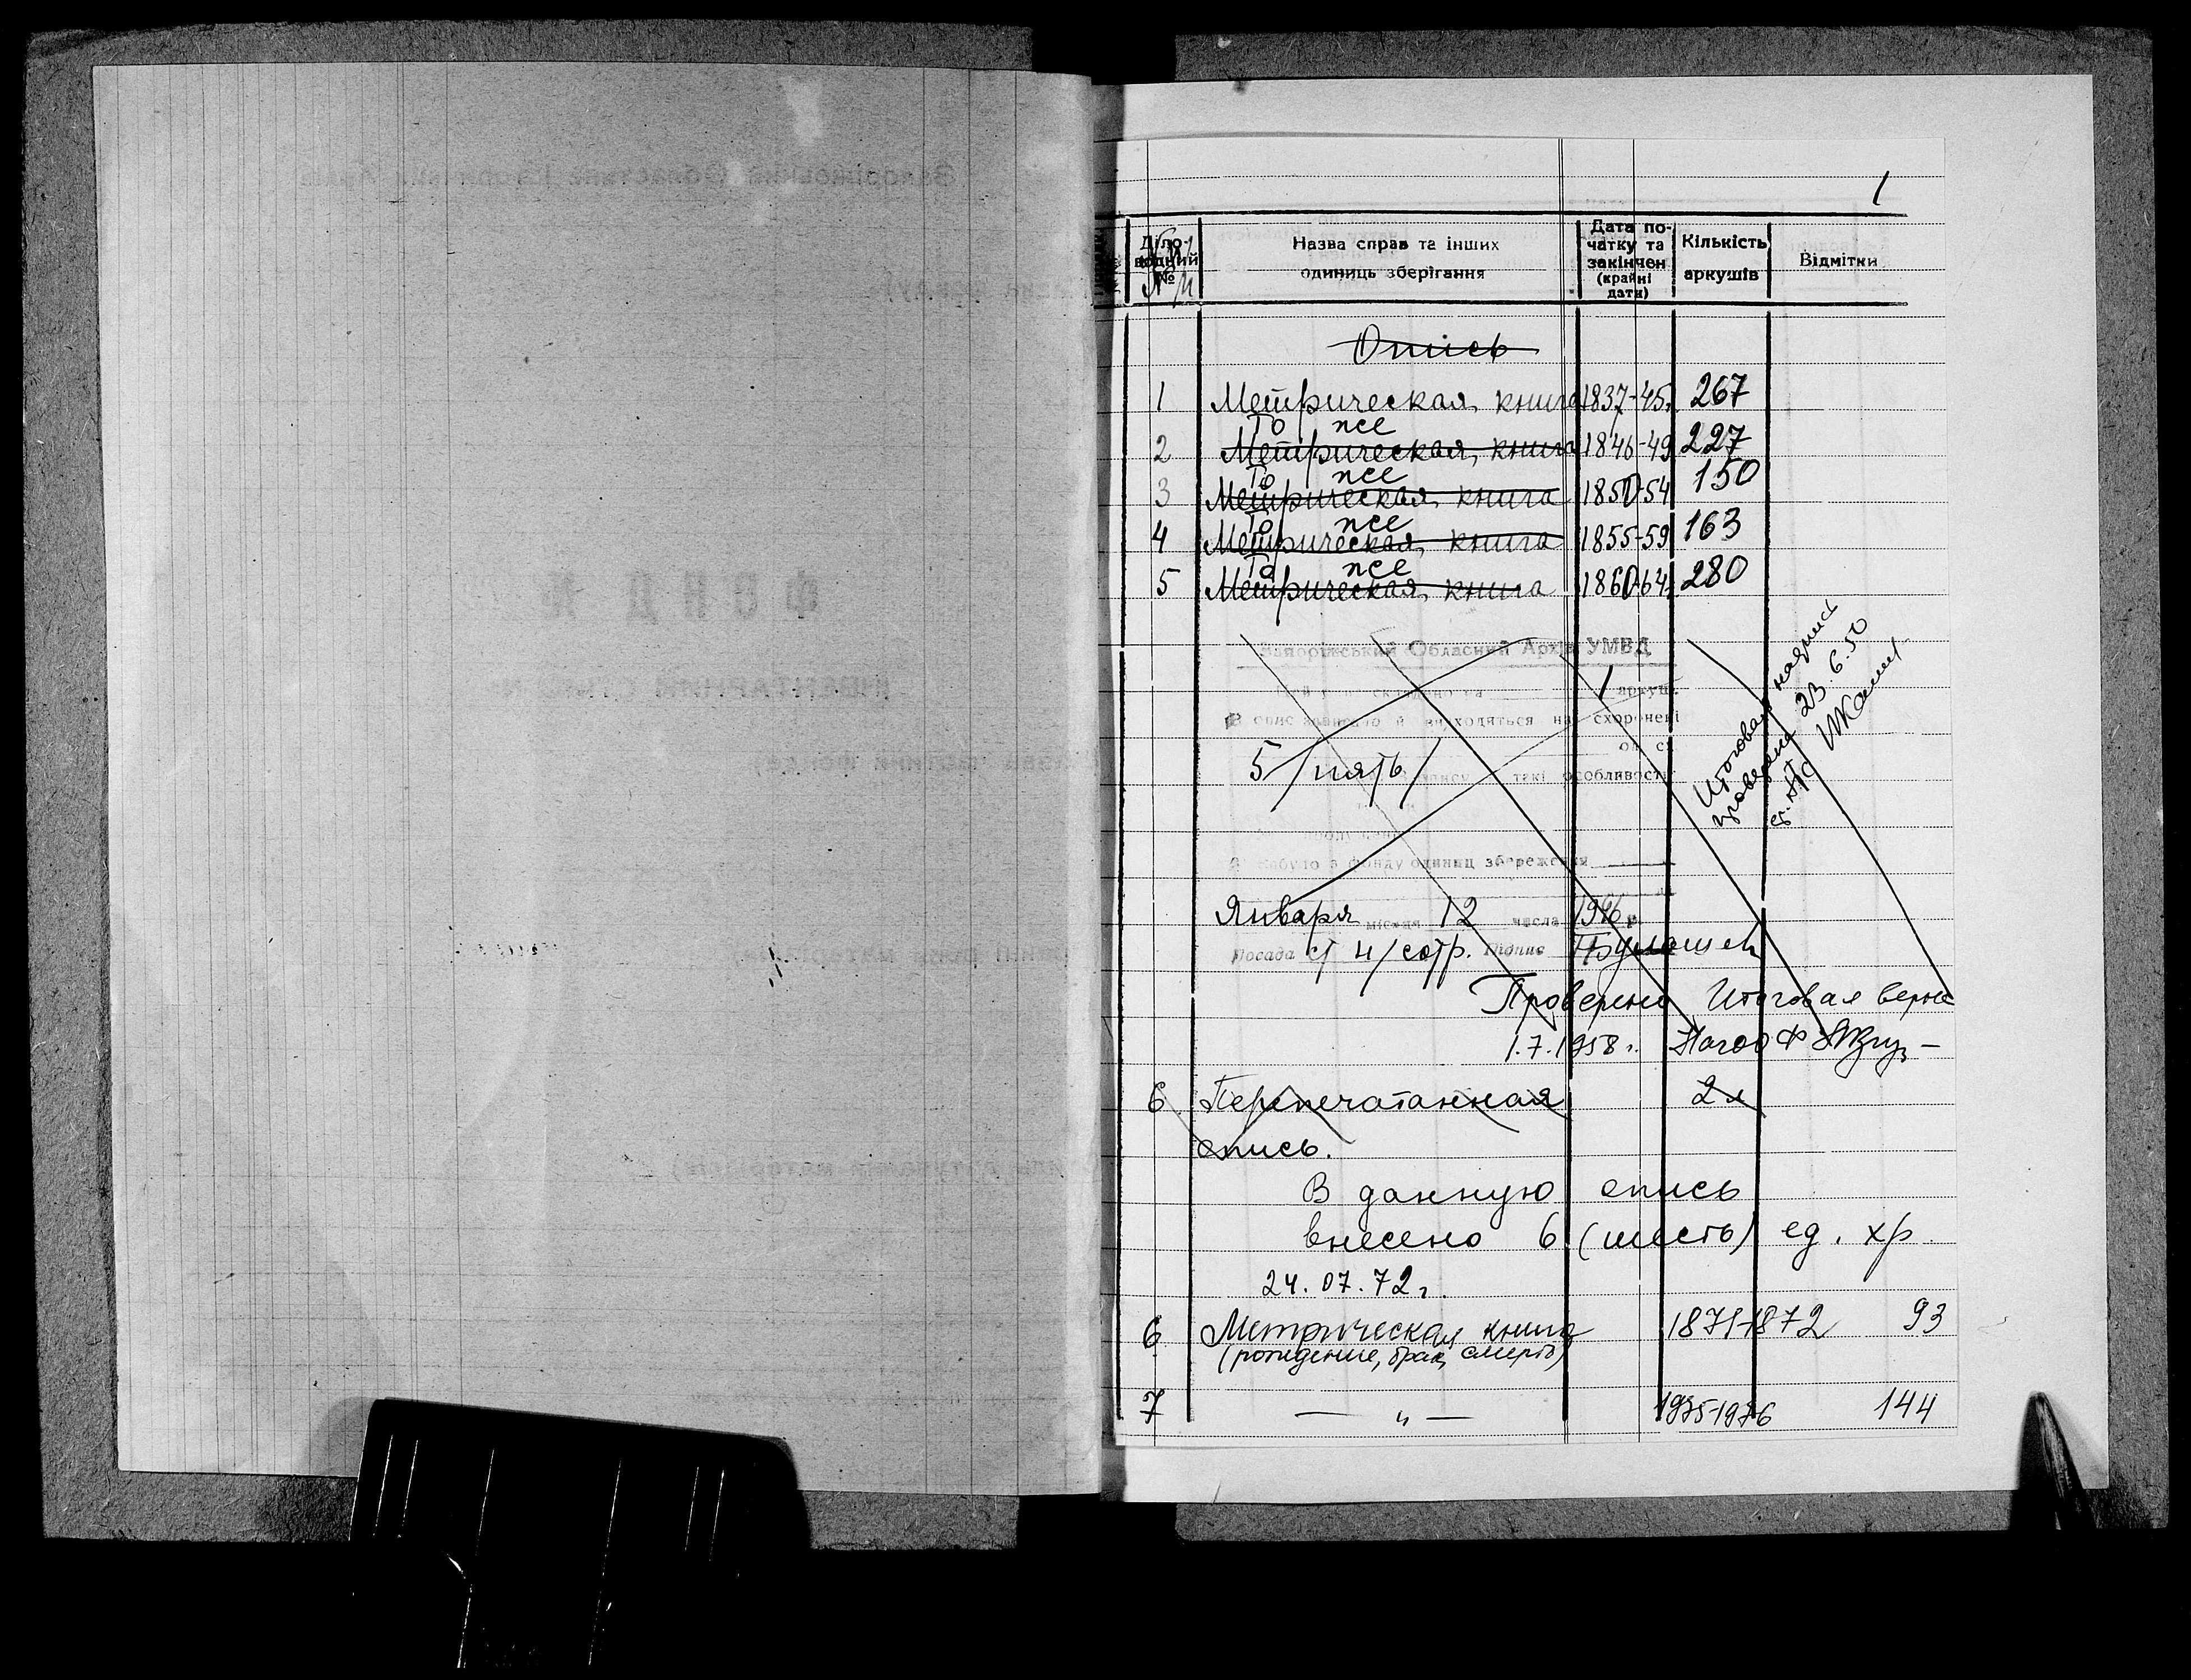 1
Діло-
водний
№
Назва справ та інших
одиниць зберігання
Дата по-
чатку та
закінчен
(крайні
дати)
Кількість
аркушів
Відмітки
Опись
1 Метрическая книга 1837-45 267
То же
2 Метрическая книга 1846-49 227
То же
3 Метрическая книга 1850-54 150
То же
4 Метрическая книга 1855-59 163
То же
5 Метрическая книга 1860-64 280
Запорізський Обласний Архів УМВД
1 аркуш
В опис знаходяться на схоронені
5 /пять/ такі особливості
Итоговая надпись
проверена 23.6.50
фонду одиниц збереження
Января місяця 12 числа 1946 р.
Посада ст н/сотр. Підпис
Проверено Итоговая верна
1.7.1958 г.
6 Перепечатанная 2 л
опись.
В данную опись
внесено 6 (шесть) ед. хр.
24.07.72 г.
6 Метрическая книга 1871-1872 93
(рождение, брак, смерть)
7 — „ — 1975-1976 144